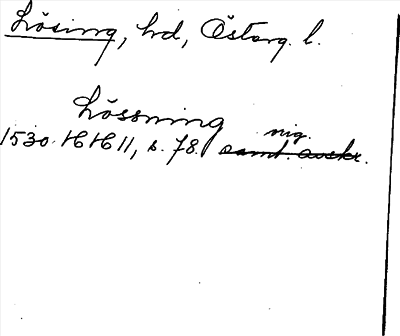 Lösing, hd, Östang. l.
Lössning
nig.
1530 HH 11, s. 78. samt. avskr.